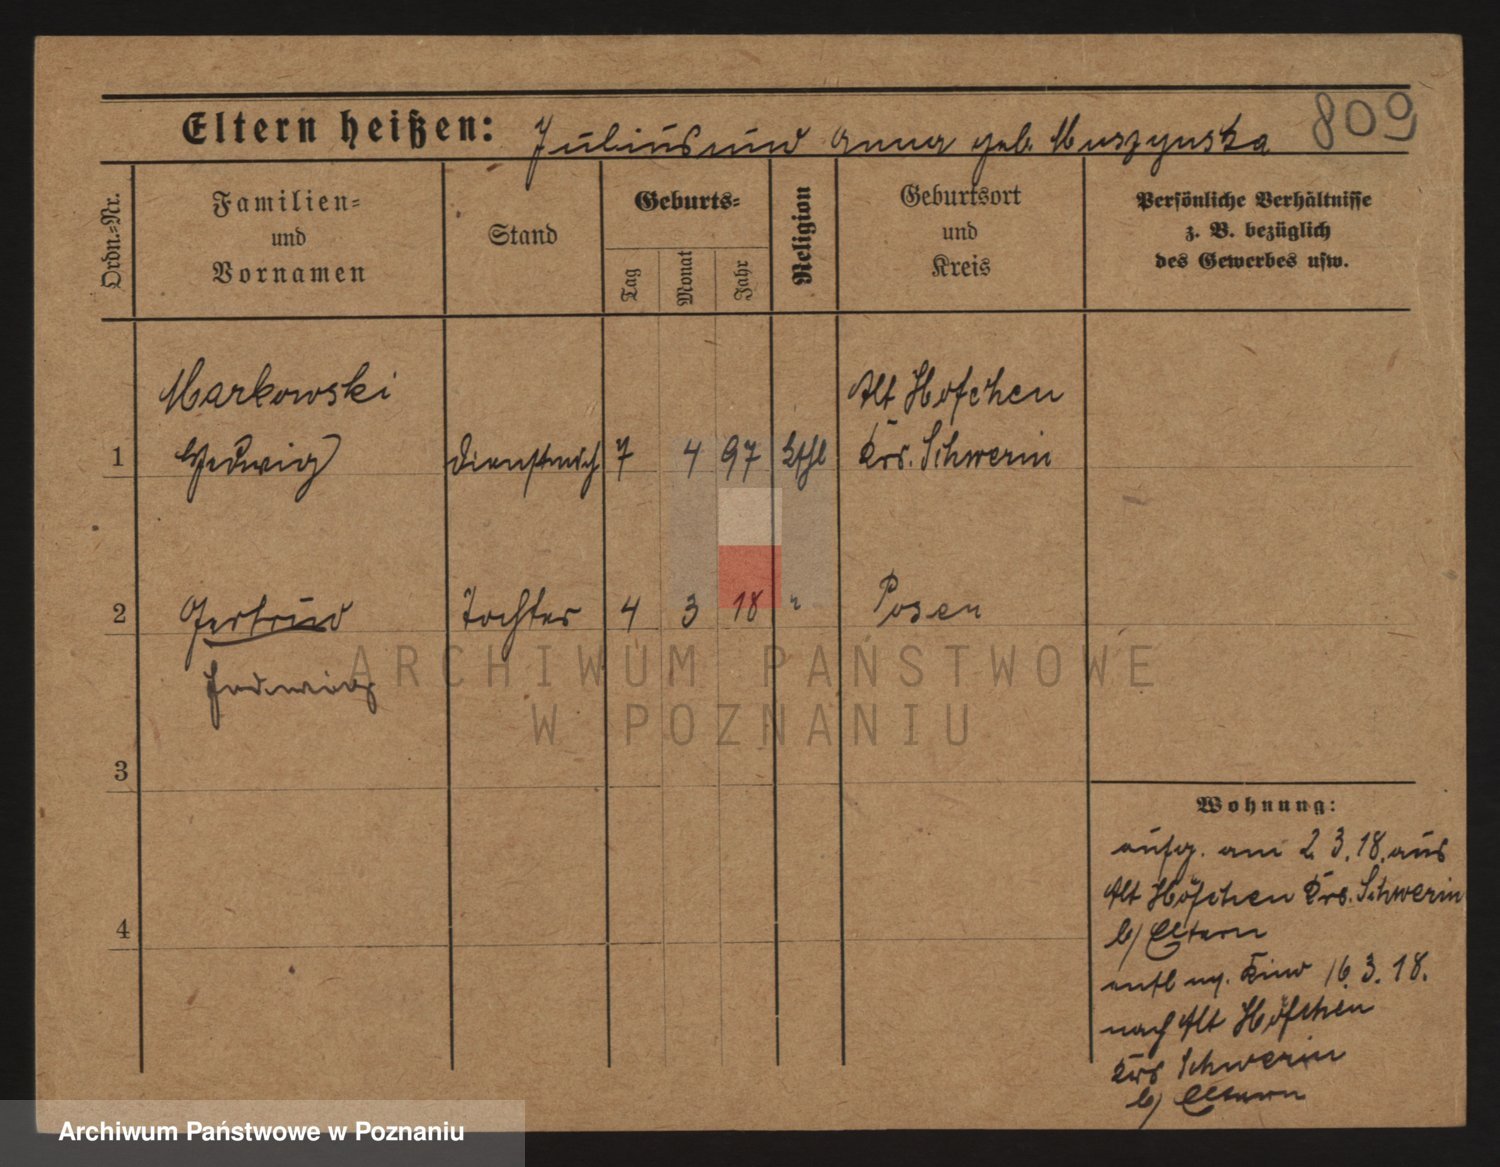 809
Eltern heißen: Julius und Anna geb. Muszynska
Ordn.-Nr.
Familien-
und
Vornamen
Stand
Geburts-
Tag
Monat
Jahr
Religion
Geburtsort
und
Kreis
Persönliche Verhältnisse
z. B. bezüglich
des Gewerbes usw.
Markowski
Alt Hofchen
1 Hedwig Dienstmdch 7 4 97 kthl Krs. Schwerin
2 Gertrud Tochter 4 3 18 " Posen
Hedwig
3
4
Wohnung:
aufg. am 2.3.18. aus
Alt Höfchen Krs. Schwerin
b/ Eltern
entl m. Kind 16.3.18.
nach Alt Höfchen
Krs Schwerin
b/ Eltern
ARCHIWUM PAŃSTWOWE
W POZNANIU
Archiwum Państwowe w Poznaniu